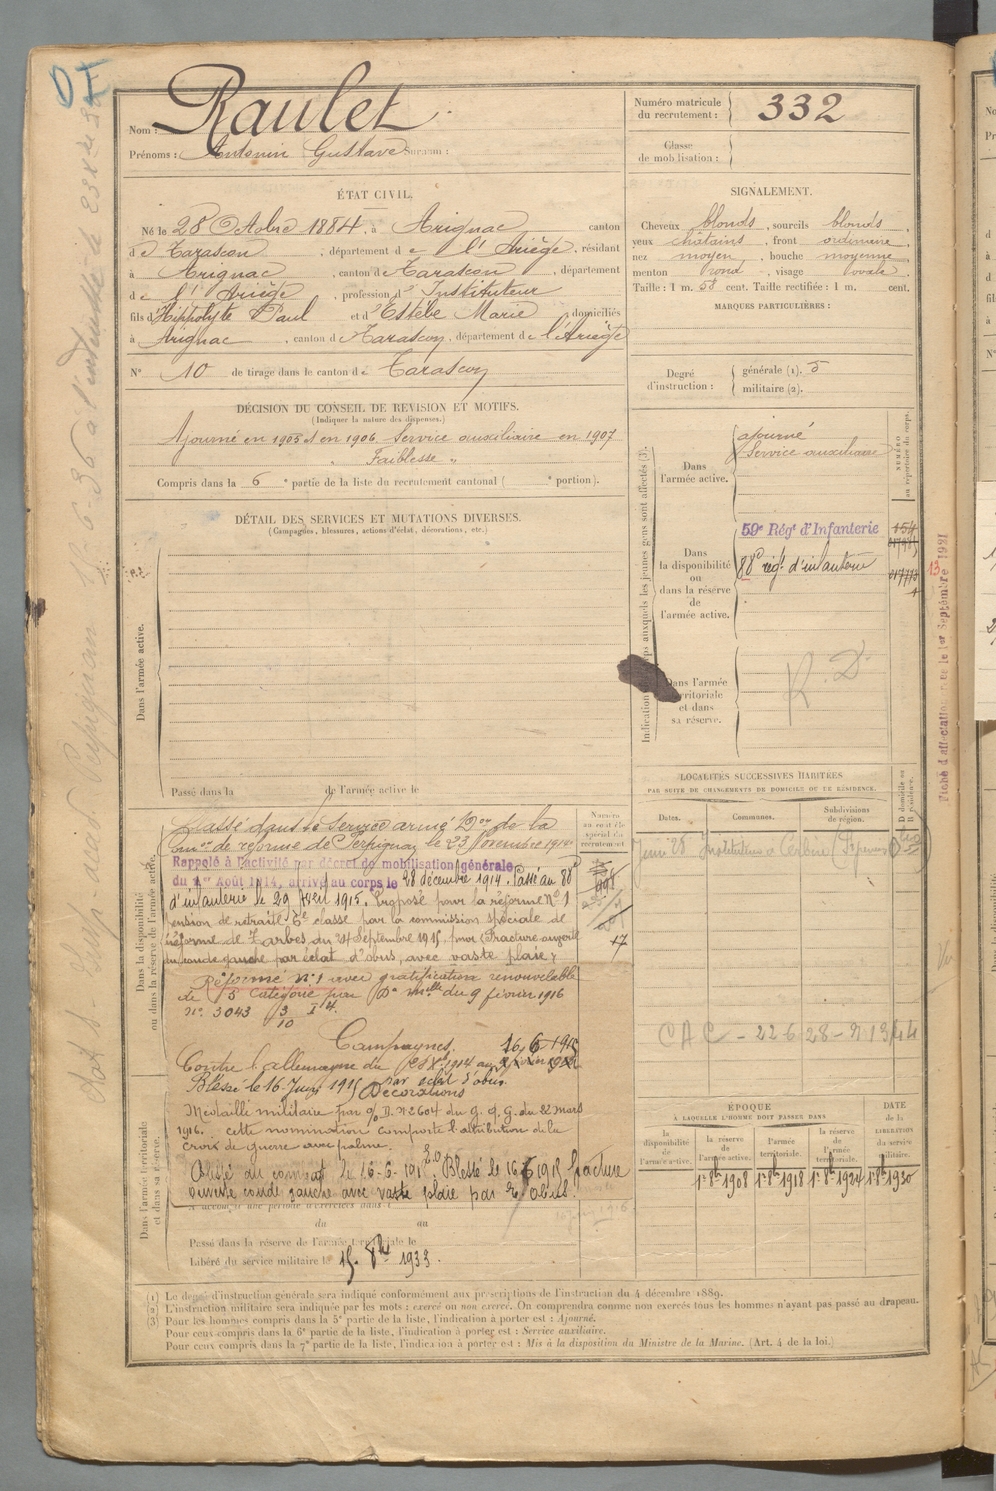 Nom : Raulet
Prénoms : Antonin Gustave Surnom :
Numéro matricule du recrutement : 332
Classe de mobilisation :
ÉTAT CIVIL.
Né le 28 Octobre 1884, à Arignac canton
de Tarascon, département de l'Ariège, résidant
à Arignac, canton de Tarascon, département
de l'Ariège, profession d'Instituteur
fils d'Hippolyte Paul et d'Estèbe Marie, domiciliés
à Arignac, canton de Tarascon, département de l'Ariège
N° 10 de tirage dans le canton de Tarascon
SIGNALEMENT.
Cheveux blonds, sourcils blonds,
yeux chatains, front ordinaire,
nez moyen, bouche moyenne,
menton rond, visage ovale,
Taille : 1 m. 58 cent. Taille rectifiée : 1 m. cent.
MARQUES PARTICULIÈRES :
Degré d'instruction : générale (1). 3
militaire (2).
DÉCISION DU CONSEIL DE REVISION ET MOTIFS.
(Indiquer la nature des dispenses.)
Ajourné en 1905 et en 1906 Service auxiliaire en 1907
" Faiblesse "
Compris dans la 6e partie de la liste du recrutement cantonal ( e portion).
DÉTAIL DES SERVICES ET MUTATIONS DIVERSES.
(Campagnes, blessures, actions d'éclat, décorations, etc.)
Dans l'armée active.
Passé dans la de l'armée active le
Indication des corps auxquels les jeunes gens sont affectés (3).
NUMÉRO au répertoire du corps.
Dans l'armée active.
ajourné
Service auxiliaire
Dans la disponibilité ou dans la réserve de l'armée active.
59e Régt d'Infanterie
88e régt d'infanterie
Dans l'armée territoriale et dans sa réserve.
R. D
LOCALITÉS SUCCESSIVES HABITÉES
PAR SUITE DE CHANGEMENTS DE DOMICILE OU DE RÉSIDENCE.
Dates. Communes. Subdivisions de région. D domicile ou R résidence.
Juin 28 Instituteur à Cerbère
CAC - 22 6 28 - N 1344
Dans la disponibilité ou dans la réserve de l'armée active.
Passé dans le Service armé Don de la
Comon de réforme de Perpignan le 23 Novembre 1914
Rappelé à l'activité par décret de mobilisation générale
du 1er Août 1914, arrivé au corps le 28 décembre 1914. Passé au 88e
d'infanterie le 29 Avril 1915. Proposé pour la réforme N° 1
pension de retraite 5e classe par la commission spéciale de
réforme de Tarbes du 24 Septembre 1915, pour (Fracture ouverte
du coude gauche par éclat d'obus, avec vaste plaie)
Réformé n° 1 avec gratification renouvelable
de 5 catégorie par Don mlle du 9 février 1916
n° 3043
Campagnes
Contre l'allemagne du 1914 au 16.6 1915
Blessé le 16 Juin 1915 par eclat d'obus.
Décorations
Médaille militaire par O/D. n° 2604 du G. Q. G. du 22 mars
1916. cette nomination comporte l'attribution de la
croix de guerre avec palme.
Blessé le 16 6 1915 fracture
ouverte coude gauche avec vaste plaie par E. obus.
Dans l'armée territoriale et dans sa réserve.
A accompli une période d'exercices dans l
du au
Passé dans la réserve de l'armée territoriale le
Libéré du service militaire le 15. 8bre 1933.
ÉPOQUE
À LAQUELLE L'HOMME DOIT PASSER DANS
la disponibilité de l'armée active. la réserve de l'armée active. l'armée territoriale. la réserve de l'armée territoriale. DATE de la LIBÉRATION du service militaire.
1er 8bre 1908 1er 8bre 1918 1er 8bre 1924 1er 8bre 1930
(1) Le degré d'instruction générale sera indiqué conformément aux prescriptions de l'instruction du 4 décembre 1889.
(2) L'instruction militaire sera indiquée par les mots : exercé ou non exercé. On comprendra comme non exercés tous les hommes n'ayant pas passé au drapeau.
(3) Pour les hommes compris dans la 5e partie de la liste, l'indication à porter est : Ajourné.
Pour ceux compris dans la 6e partie de la liste, l'indication à porter est : Service auxiliaire.
Pour ceux compris dans la 7e partie de la liste, l'indication à porter est : Mis à la disposition du Ministre de la Marine. (Art. 4 de la loi.)